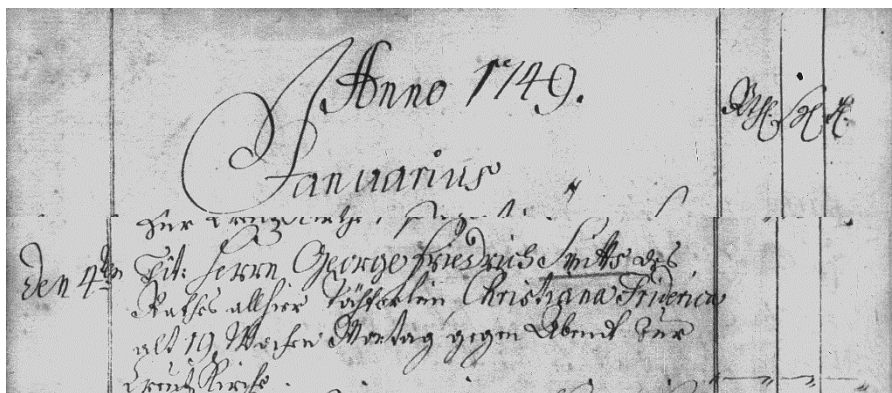 Anno 1749.
Rth. Sl. d.
Januarius
den 4ten Tit: Herrn George Friedrich Smitts des
Rathes allhier Töchterlein Christiana Friderica
alt 19 Wochen Montag gegen Abend zur
Creutz Kirche.